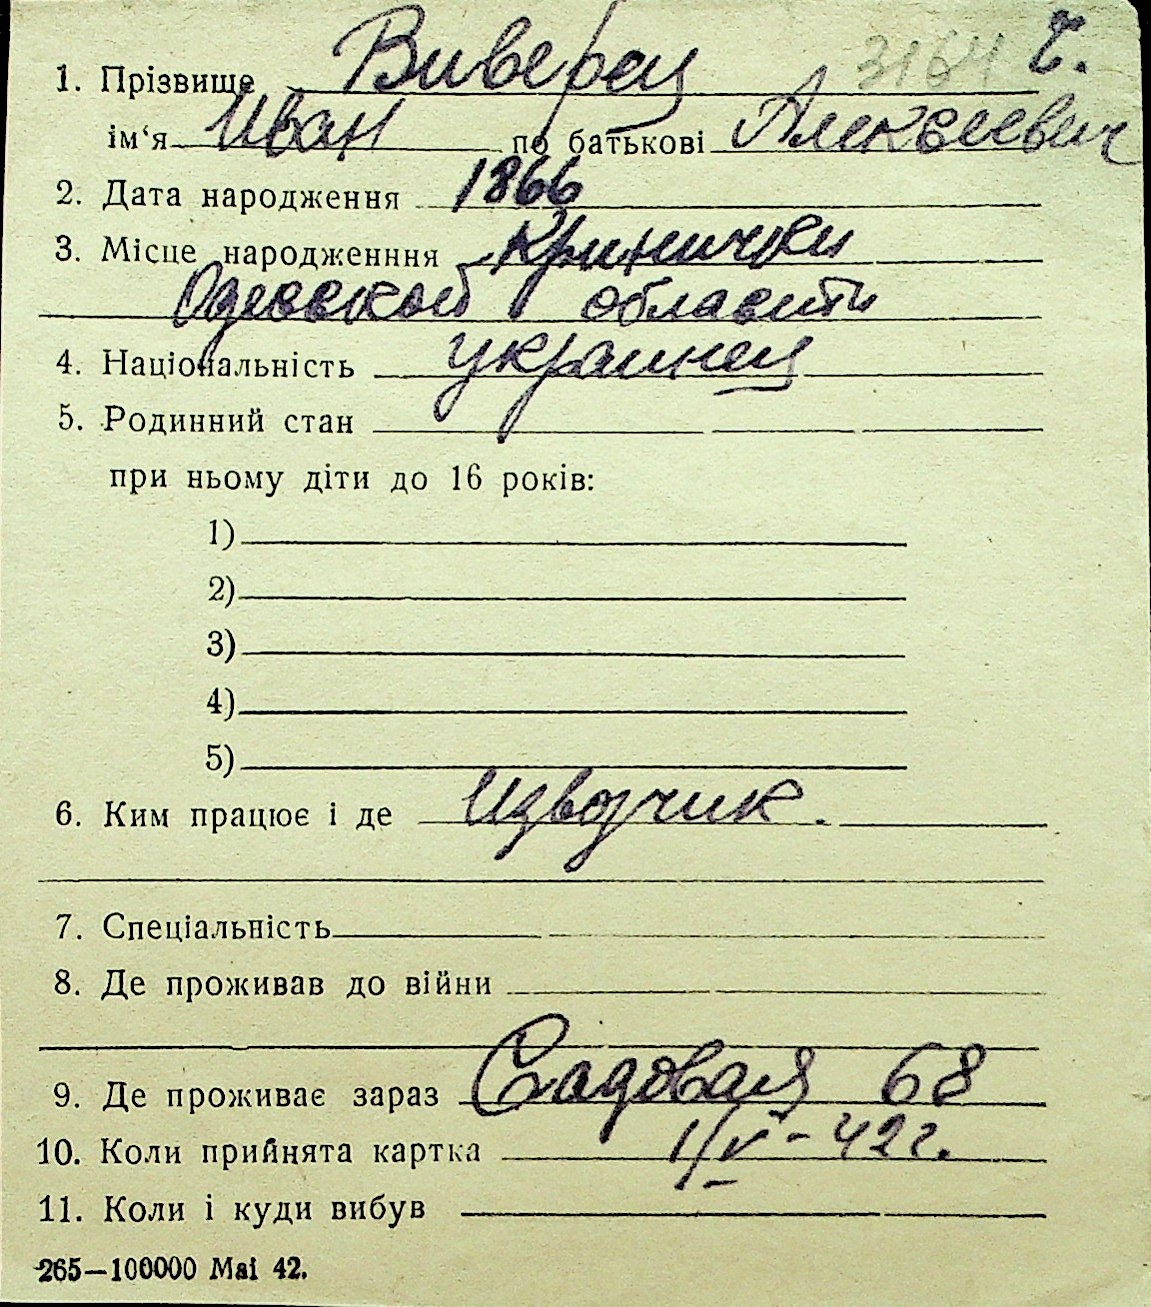 3164 Ч.
1. Прізвище Виверец
ім‘я Иван по батькові Алексеевич
2. Дата народження 1866
3. Місце народженння Кринички
Одесской области
4. Національність украинец
5. Родинний стан
при ньому діти до 16 років:
1)
2)
3)
4)
5)
6. Ким працює і де Извозчик.
7. Спеціальність
8. Де проживав до війни
9. Де проживає зараз Садовая 68
10. Коли прийнята картка 1/V-42 г.
11. Коли і куди вибув
265—100000 Mai 42.